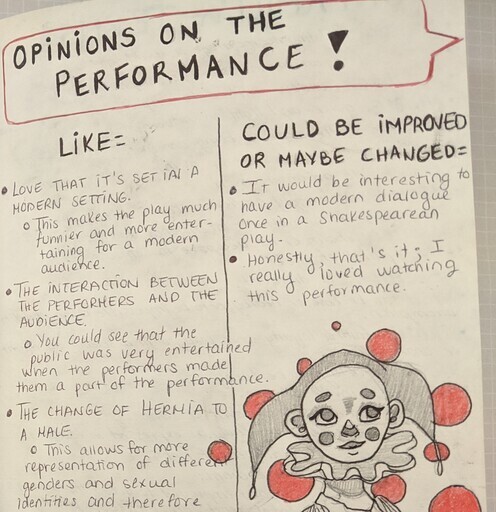 OPINIONS ON THE
PERFORMANCE!
LIKE=
• LOVE THAT IT'S SET IN A
MODERN SETTING.
o This makes the play much
funnier and more enter-
taining for a modern
audience.
• THE INTERACTION BETWEEN
THE PERFORMERS AND THE
AUDIENCE.
o You could see that the
public was very entertained
when the performers made
them a part of the performance.
• THE CHANGE OF HERMIA TO
A MALE.
o This allows for more
representation of different
genders and sexual
identities and therefore
COULD BE IMPROVED
OR MAYBE CHANGED=
• It would be interesting to
have a modern dialogue
once in a Shakespearean
play.
• Honestly, that's it; I
really loved watching
this performance.